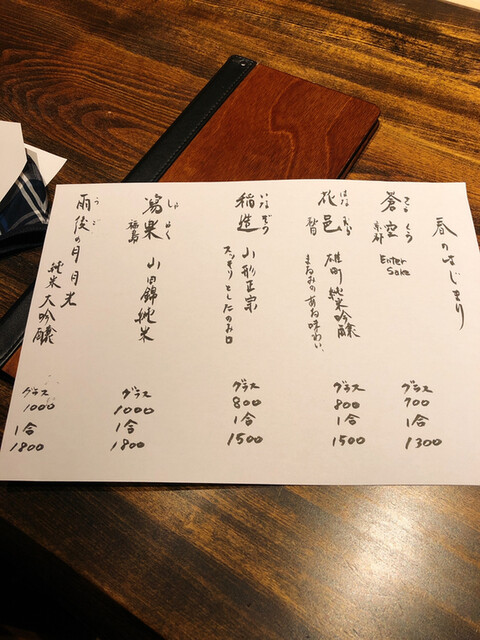 春のはじまり
そうくう
蒼空
京都
Enter
Sake
グラス
700
1合
1300
はなむら
花邑
雄町 純米吟醸
まるみのある味わい、
グラス
800
1合
1500
いなぞう
稲造
山形正宗
スッキリとしたのみ口
グラス
800
1合
1500
しゃらく
瀉楽
福島
山田錦純米
グラス
1000
1合
1800
うご
雨後の月 月光
純米大吟醸
グラス
1000
1合
1800